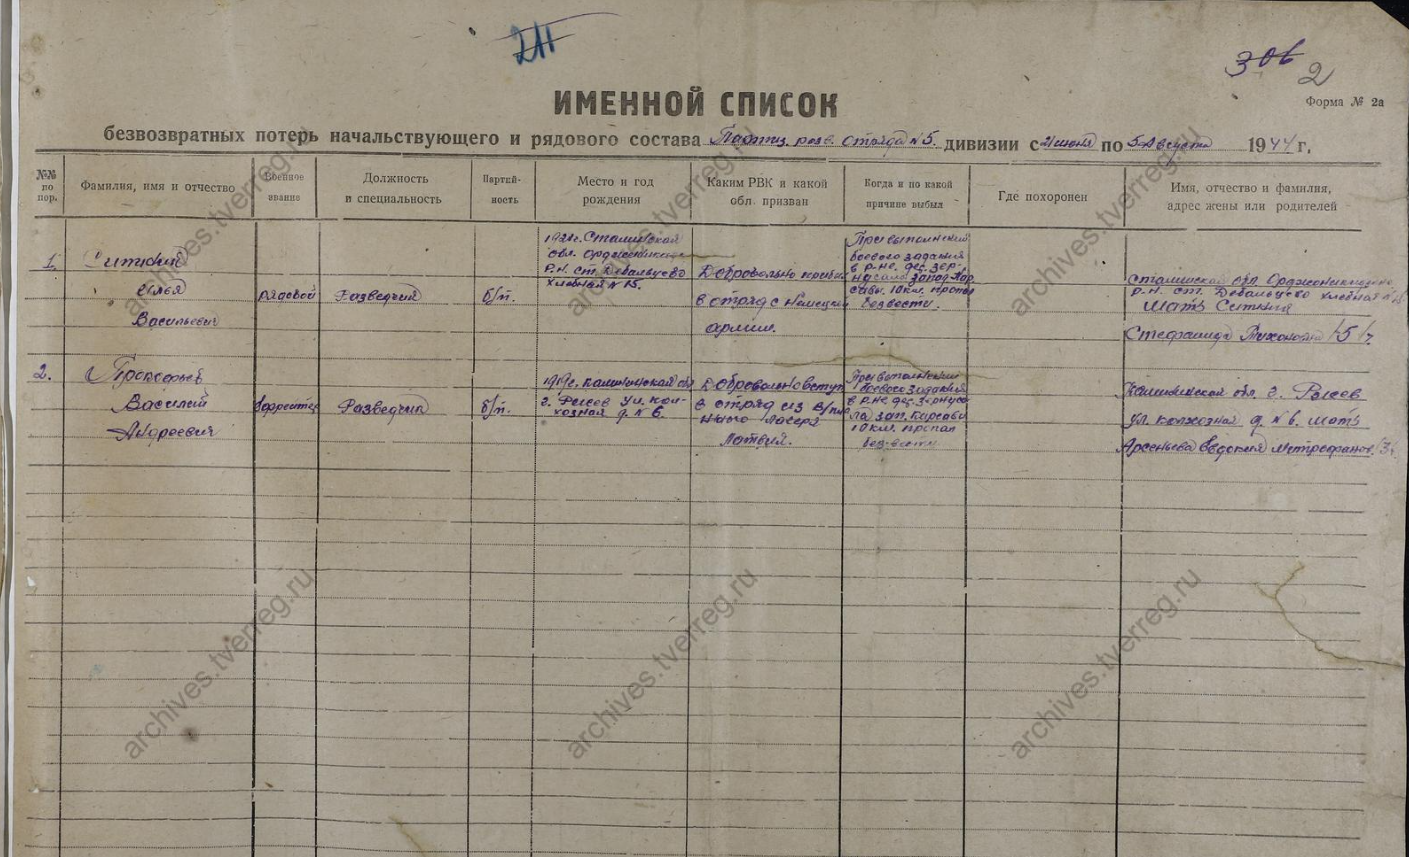 211
306
2
ИМЕННОЙ СПИСОК
Форма № 2а
безвозвратных потерь начальствующего и рядового состава Партиз. разв. отряда №5. дивизии с 2 июня по 5 августа 1944 г.
№№ по пор.
Фамилия, имя и отчество
Военное звание
Должность и специальность
Партийность
Место и год рождения
Каким РВК и какой обл. призван
Когда и по какой причине выбыл
Где похоронен
Имя, отчество и фамилия, адрес жены или родителей
1.
Ситкий
Илья
Васильевич
рядовой
Разведчик
б/п.
Сталинской
обл.
р.н. ст. Дебальцево
Хлебная № 15.
Добровольно
в отряд с Немецкой
армии.
При выполнении
боевого задания
в р-не. дер.
10 км. пропал
безвести.
Сталинская обл.
р.н. ст. Дебальцево Хлебная
Мать
Стефанида Тихоновна
2.
Прокофьев
Василий
Андреевич
ефрейтор
Разведчик
б/п.
1919г. Калининская обл
г. Ржев ул. Кол-
хозная д. № 6
Добровольно вступ.
в отряд из в/плен
ного лагеря
Латвия.
При выполнении
боевого задания
в р-не дер.
10 км. пропал
безвести
Калининская обл. г. Ржев
ул. колхозная д. № 6. мать
Арсеньева Евдокия
archives.tverreg.ru
archives.tverreg.ru
archives.tverreg.ru
archives.tverreg.ru
archives.tverreg.ru
archives.tverreg.ru